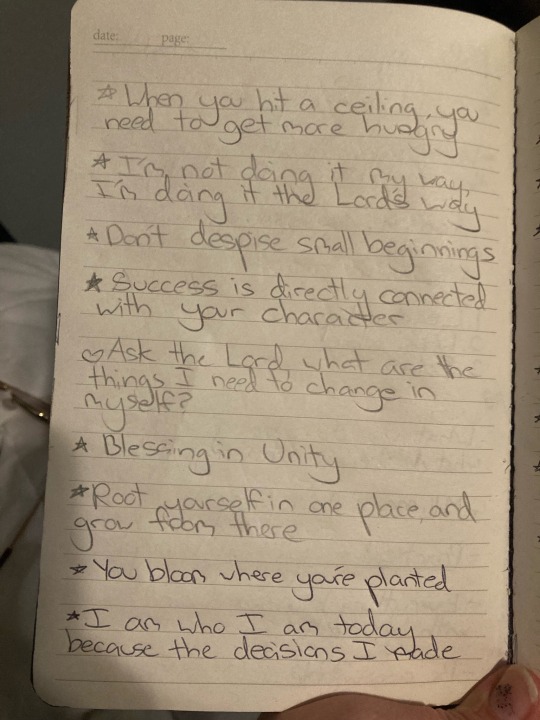 date: page:
☆ When you hit a ceiling, you
need to get more hungry
★ I'm not doing it my way,
I'm doing it the Lord's way
★ Don't despise small beginnings
★ Success is directly connected
with your character
♡ Ask the Lord, what are the
things I need to change in
myself?
★ Blessing in Unity
★ Root yourself in one place, and
grow from there
★ You bloom where you're planted
★ I am who I am today
because the decisions I made